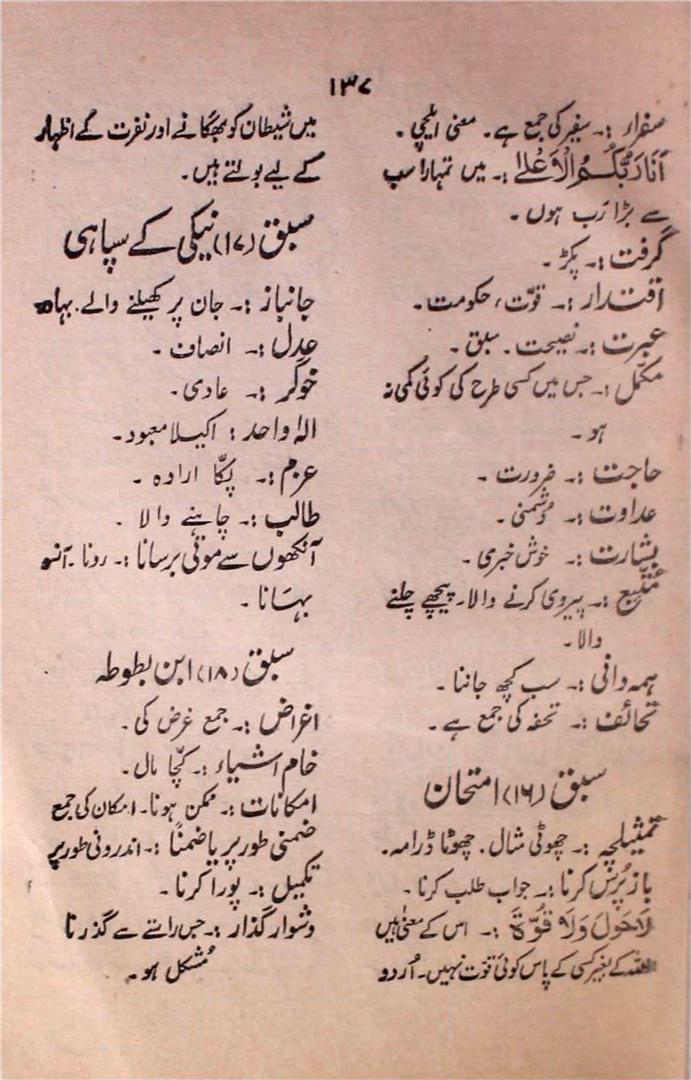 ۱۳۷
سفراء :۔ سفیر کی جمع ہے۔ معنی ایلچی ۔
أَنَا رَبُّكُمُ الْأَعْلٰے :۔ میں تمہارا سب
سے بڑا رَب ہوں ۔
گرفت :۔ پکڑ ۔
اقتدار :۔ قوّت، حکومت ۔
عبرت :۔ نصیحت ۔ سبق ۔
مکمّل :۔ جس میں کسی طرح کی کوئی کمی نہ
ہو ۔
حاجت :۔ ضرورت ۔
عداوت :۔ دُشمنی ۔
بشارت :۔ خوش خبری ۔
متّبع :۔ پیروی کرنے والا۔ پیچھے چلنے
والا ۔
ہمہ دانی :۔ سب کچھ جاننا ۔
تحائف :۔ تحفہ کی جمع ہے ۔
سبق (۱۶) امتحان
تمثیلچہ :۔ چھوٹی مثال ۔ چھوٹا ڈرامہ ۔
باز پُرس کرنا :۔ جواب طلب کرنا ۔
لَاحَوْلَ وَلَا قُوَّةَ :۔ اس کے معنیٰ ہیں
اللہ کے بغیر کسی کے پاس کوئی قوّت نہیں۔ اُردو
میں شیطان کو بھگانے اور نفرت کے اظہار
کے لیے بولتے ہیں ۔
سبق (۱۷) نیکی کے سپاہی
جانباز :۔ جان پر کھیلنے والے۔
عدل :۔ انصاف ۔
خوگر :۔ عادی ۔
الٰہ واحد : اکیلا معبود ۔
عزم :۔ پکّا ارادہ ۔
طالب :۔ چاہنے والا ۔
آنکھوں سے موتی برسانا :۔ رونا ۔ آنسو
بہانا ۔
سبق (۱۸) ابن بطوطہ
اغراض :۔ جمع غرض کی ۔
خام اشیاء :۔ کچّا مال ۔
امکانات :۔ ممکن ہونا۔ امکان کی جمع
ضمنی طور پر یا ضمناً :۔ اندرونی طور پر
تکمیل :۔ پورا کرنا ۔
دشوار گذار :۔ جس راستے سے گذرنا
مُشکل ہو ۔